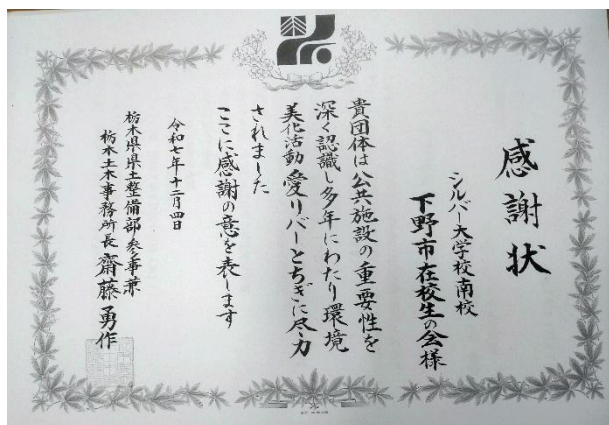 感謝状
シルバー大学校南校
下野市在校生の会様
貴団体は公共施設の重要性を
深く認識し多年にわたり環境
美化活動愛リバーとちぎに尽力
されました
ここに感謝の意を表します
令和七年十二月四日
栃木県県土整備部参事兼
栃木土木事務所長 齋藤勇作